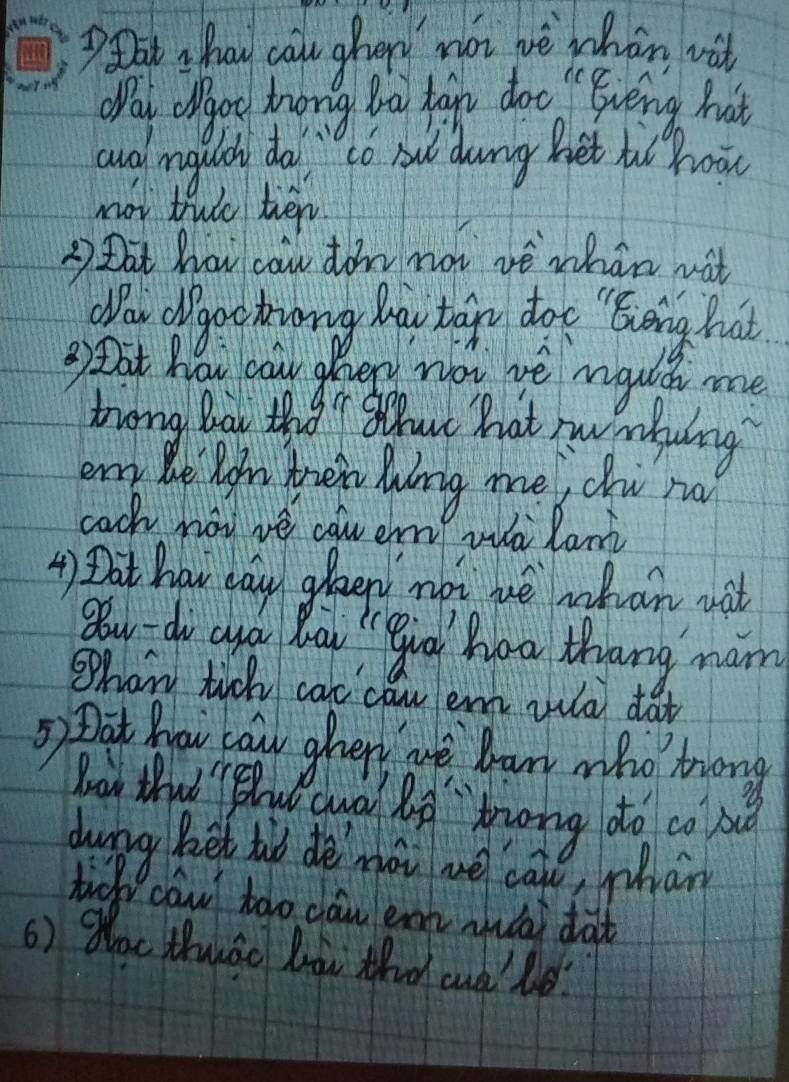 1) Đặt 2 hai câu ghép nói về nhân vật
Mai Ngọc trong bà tập đọc "Tiếng hát
của người đá" có sử dụng kết từ hoặc
nối trực tiếp.
2) Đặt hai câu đơn nói về nhân vật
Mai Ngọc trong bài tập đọc "Tiếng hát...
3) Đặt hai câu ghép nói về người mẹ
trong bài thơ "Khúc hát ru những
em bé lớn trên lưng mẹ, chỉ ra
cách nối vế câu em vừa làm
4) Đặt hai cây ghép nói về nhân vật
Xu-di của bài "Giá hoa tháng năm
Phân tích các câu em vừa đặt
5) Đặt hai câu ghép về bạn nhỏ trong
bài thư "Thư của bố" trong đó có sử
dụng kết từ để nối vế câu, phân
tích câu tạo câu em vừa đặt
6) Học thuộc bài thơ của bố.